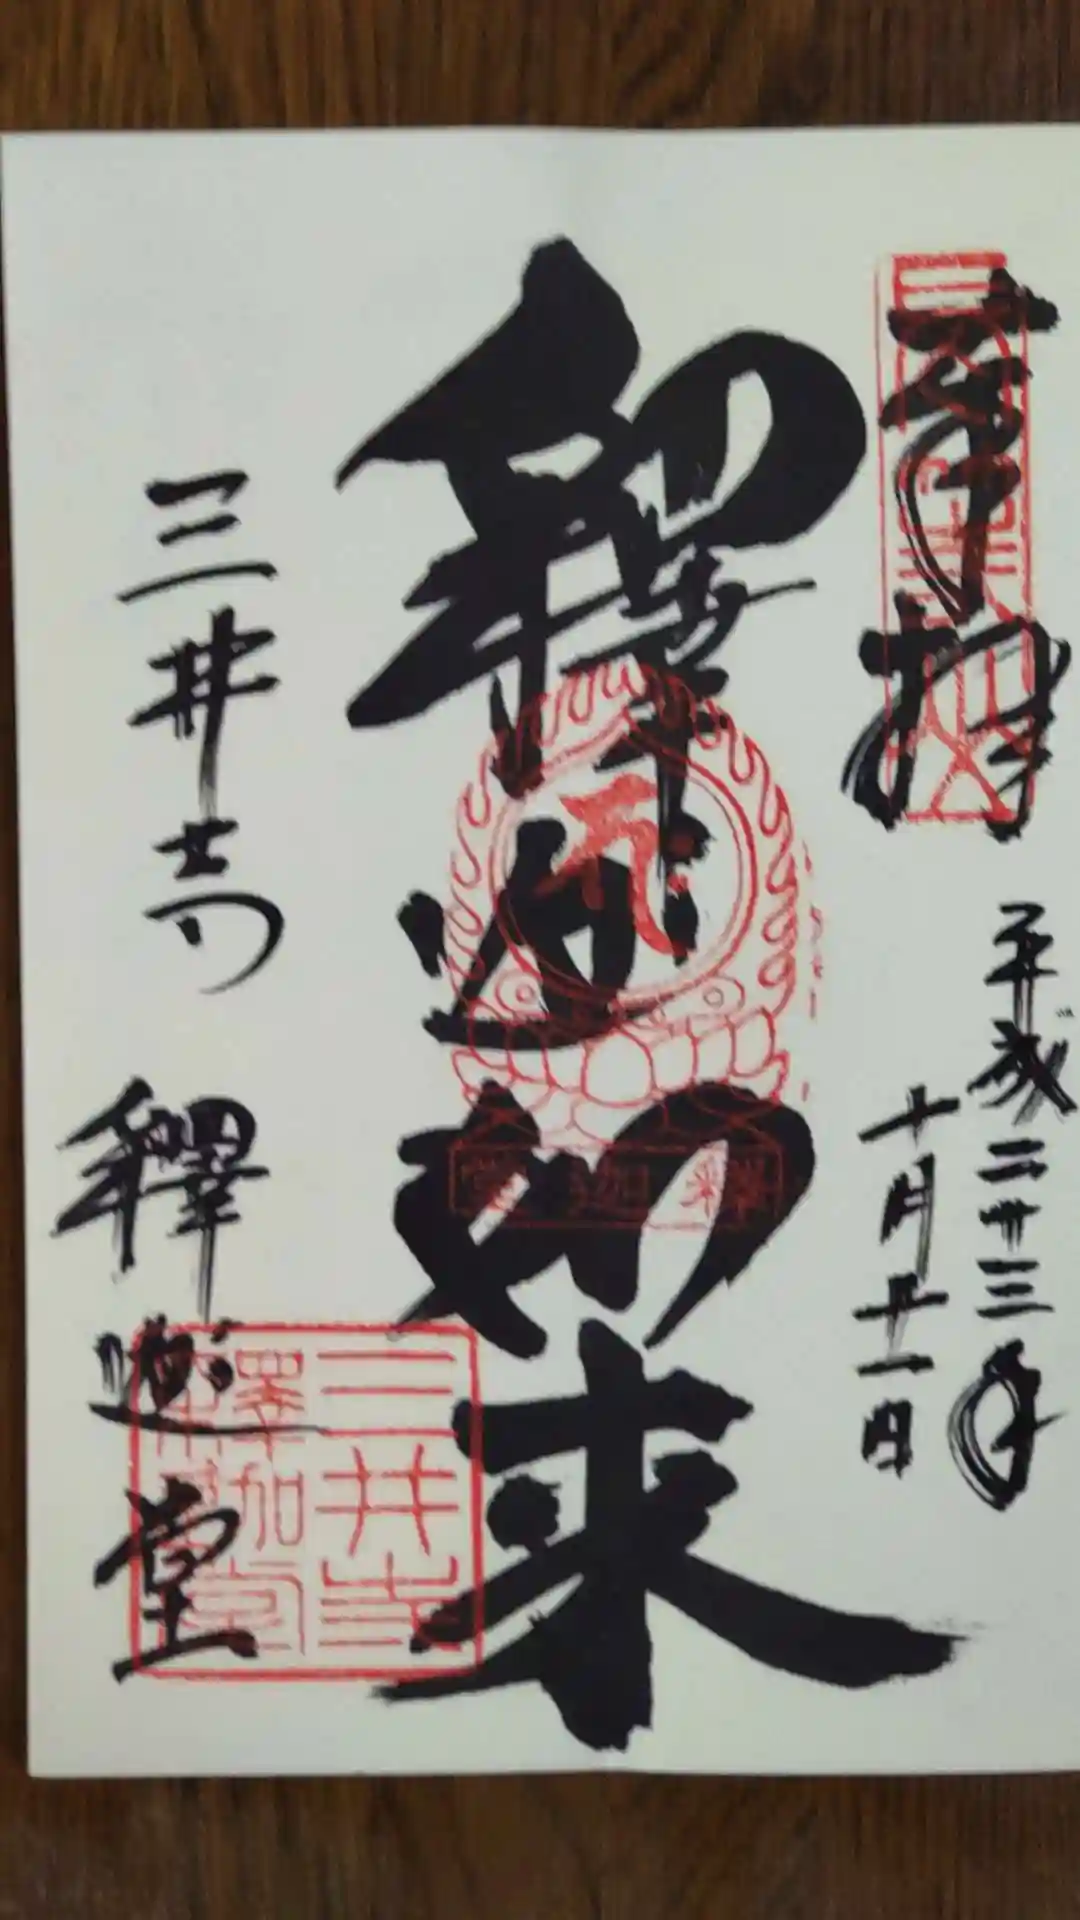 奉拝
平成二十三年
十月廿一日
釋迦如来
釋迦堂
三井寺
釋迦堂
三井寺
釋迦堂